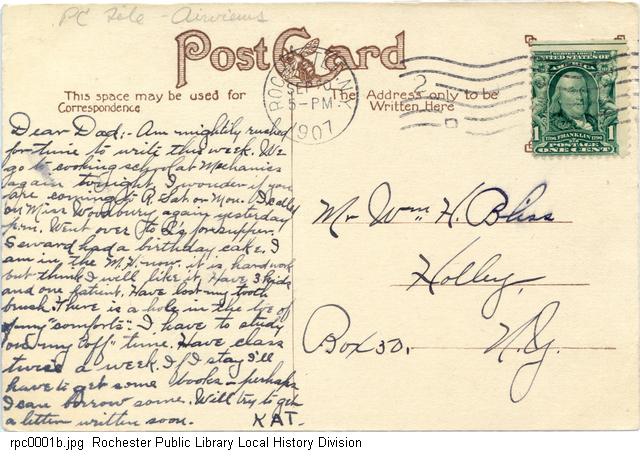 PC File - Airviews
Post Card
This space may be used for
Correspondence
The Address only to be
Written Here
SEP
5-PM
1907
UNITED STATES OF
FRANKLIN
POSTAGE
1 ONE CENT 1
Dear Dad;- Am mightily rushed
for time to write this week. We
go to cooking school at Mechanics
again tonight. I wonder if you
are coming to R. Sat. or Mon. I called
on Miss Woodbury again yesterday
p.m. Went over to L's for supper.
Seward had a birthday cake. I
am in the M.K. now. it is hard work
but think I will like it. Have 3 kids
and one patient. Have lost my tooth
brush. There is a hole in the toe of
my "comforts". I have to study
on my "off" time. Have class
twice a week. If I stay I'll
have to get some books - perhaps
I can borrow some. Will try to get
a letter written soon. KAT.
Mr Wm H. Bliss
Holley,
Box 30. N.Y.
rpc0001b.jpg Rochester Public Library Local History Division